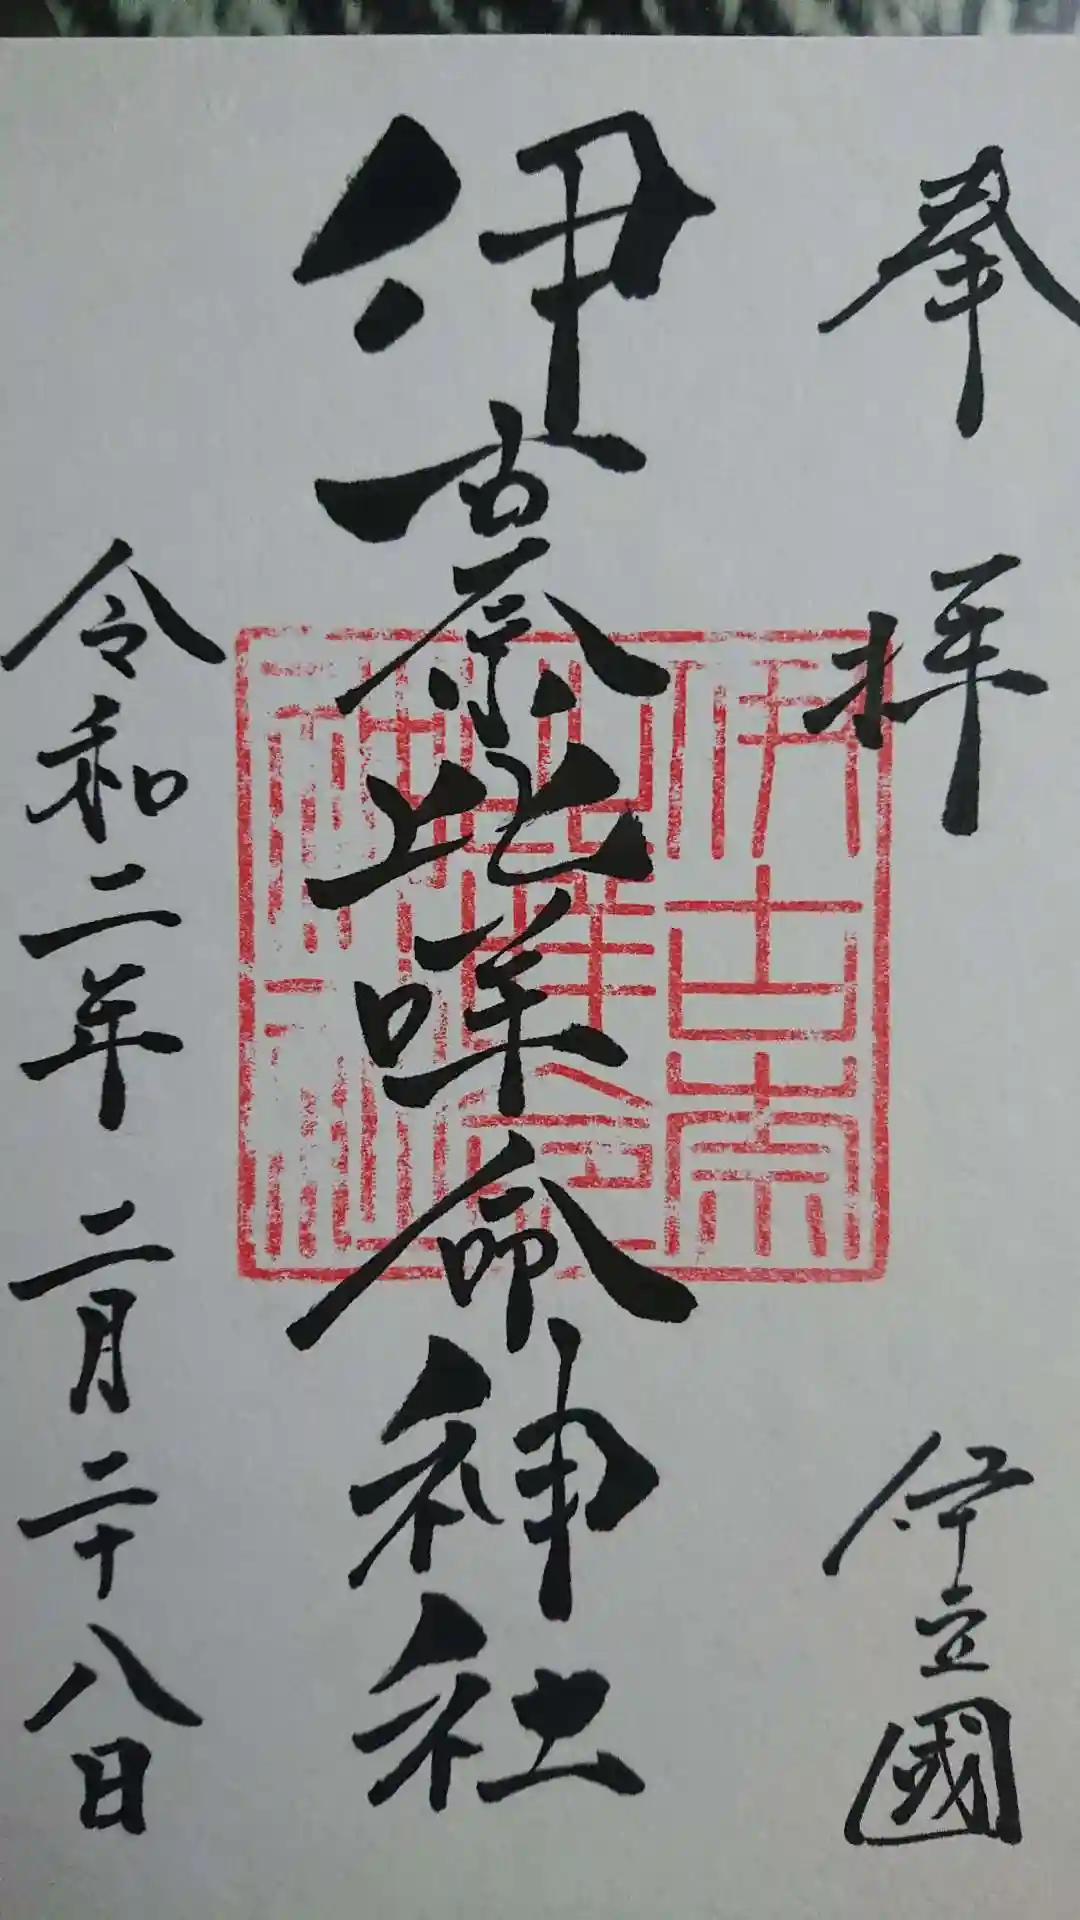 奉拝 伊豆國
伊古奈比咩命神社
令和二年 二月二十八日
伊古奈
比咩命
神社